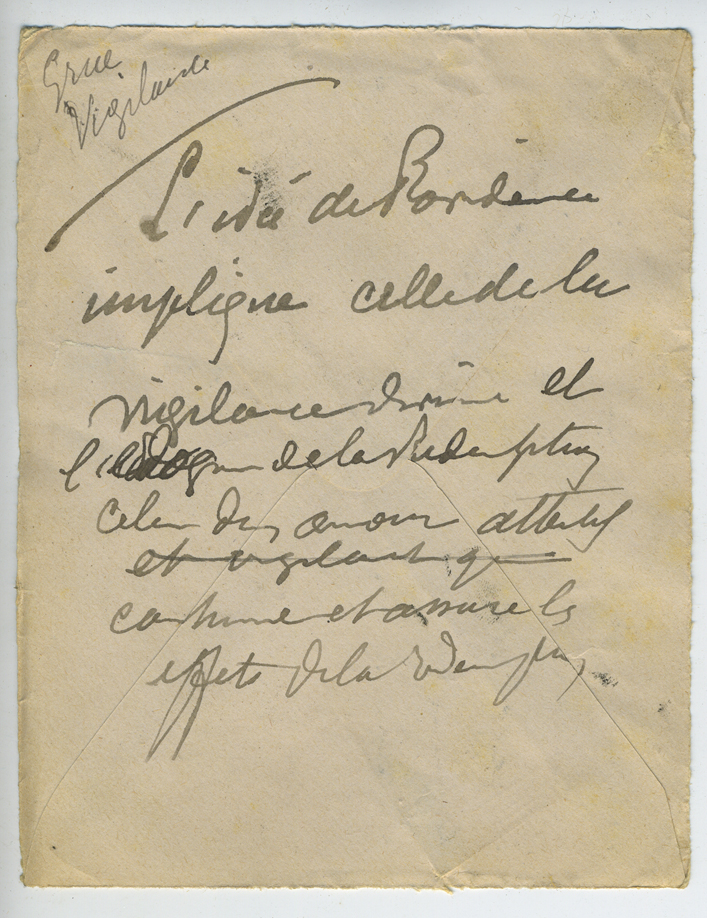 Grue
Vigilante
L'idée de Providence
implique celle de la
vigilance divine et
de la Rédemption
celle d'un amour attentif
et vigilant qui
continue et assure les
effets de la rédemption